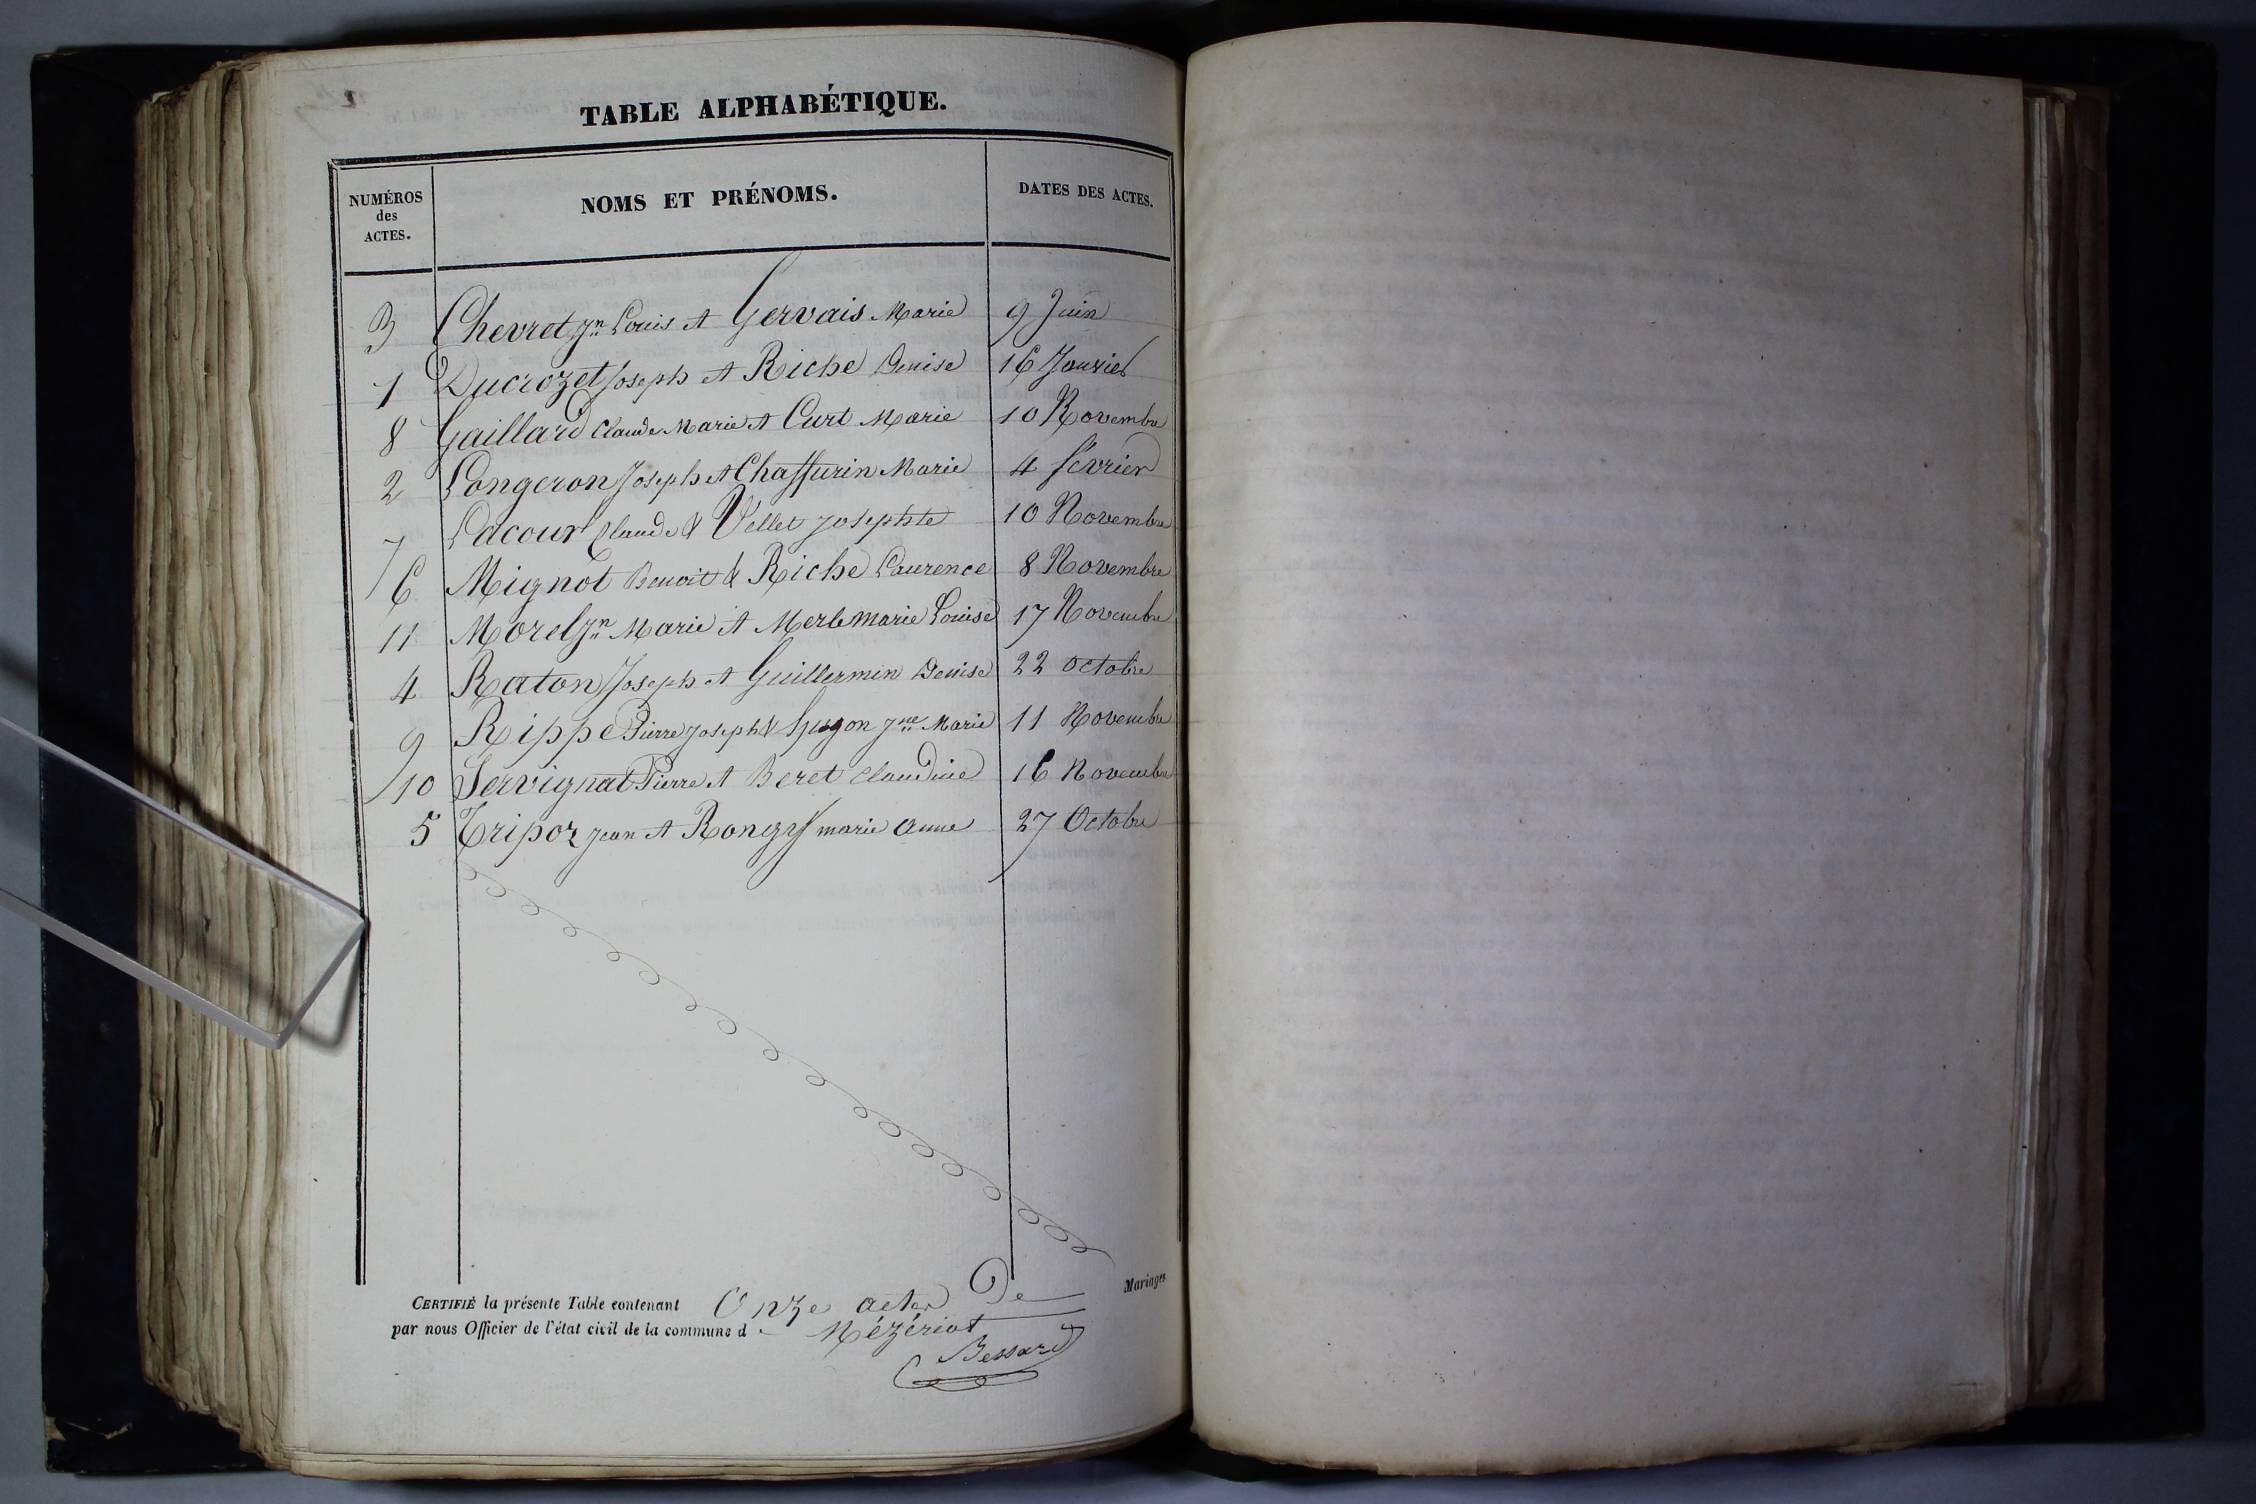 TABLE ALPHABÉTIQUE.
NUMÉROS des ACTES. NOMS ET PRÉNOMS. DATES DES ACTES.
3 Chevret Jn Louis et Gervais Marie 9 Juin
1 Ducrozet Joseph et Riche Denise 16 Janvier
8 Gaillard Claude Marie et Curt Marie 10 Novembre
2 Longeron Joseph et Chaffurin Marie 4 février
7 Lacour Claude & Vellet Josephte 10 Novembre
6 Mignot Benoit & Riche Laurence 8 Novembre
11 Morel Jn Marie et Merle marie Louise 17 Novembre
4 Raton Joseph et Guillermin Denise 22 octobre
9 Rippe Pierre Joseph & Gugon Jne Marie 11 Novembre
10 Servignat Pierre et Beret Claudine 16 Novembre
5 Tripoz Jean et Rongy marie anne 27 Octobre
CERTIFIÉ la présente Table contenant Onze actes De Mariages
par nous Officier de l'état civil de la commune d Mézériat
Bessard